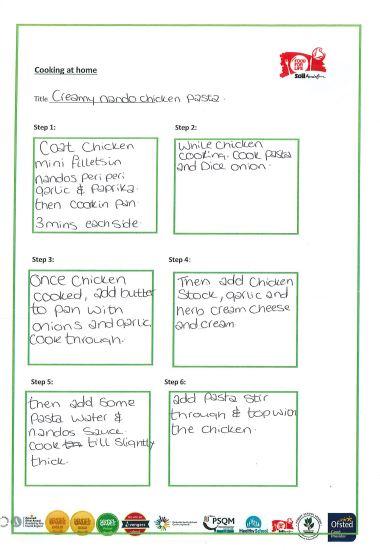 FOOD FOR LIFE
Soil Association
Cooking at home
Title Creamy nando chicken pasta.
Step 1:
Coat Chicken
mini filletsin
nandos peri peri
garlic & paprika.
then cookin pan
3 mins each side.
Step 2:
While Chicken
cooking. Cook pasta
and Dice onion.
Step 3:
Once Chicken
cooked, add butter
to pan with
onions and garlic.
Cook through.
Step 4:
Then add Chicken
Stock, garlic and
herb cream cheese
and cream.
Step 5:
then add some
Pasta water &
nandos sauce.
Cook till slightly
thick.
Step 6:
add pasta stir
through & top with
the chicken.
PSQM
Ofsted